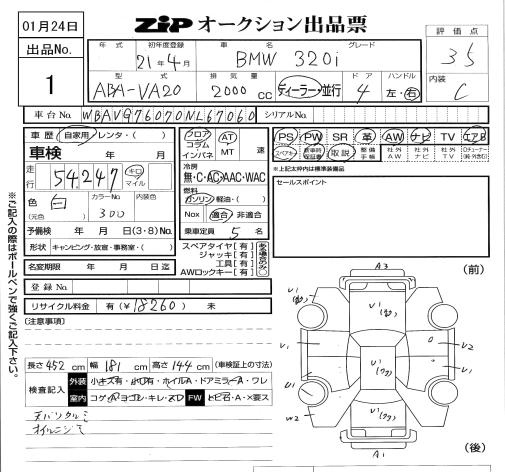 01月24日
ZiP オークション出品票
評価点
出品No.
1
年式
初年度登録
21年4月
車名
グレード
BMW 320i
35
型式
ABA-VA20
排気量
2000 CC
ディーラー・並行
ドア
4
ハンドル
左・右
内装
C
車台No.
WBAVG76070NL67060
シリアルNo.
車歴 自家用 レンタ・( )
フロア コラム インパネ
AT MT
速
PS PW SR 革 AW ナビ TV エアB
車検 年 月
スペアキー 新車時保証書 取説 整備手帳 社外AW 社外ナビ 社外TV
※上記太枠内は標準装備品
冷房
無・C・AC・AAC・WAC
走行 54,247 キロ マイル
燃料
ガソリン・軽油・( )
セールスポイント
色(元色) 白
カラーNo. 300
内装色
Nox 適合 非適合
予備検 年 月 日(3・8)No.
乗車定員 5 名
形状 キャンピング・放宣・事務室・( )
スペアタイヤ[有]
ジャッキ[有]
工具[有]
AWロックキー[有]
名変期限 年 月 日迄
登録No.
リサイクル料金 有(¥18260) 未
(注意事項)
長さ 452 cm 幅 181 cm 高さ 144 cm (車検証上の寸法)
検査記入
外装 小キズ有・小凹有・ホイルA・ドアミラーA・ワレ
室内 コゲ・穴・ヨゴレ・キレ・スレ FW トビ石・A・×要ス
天バリクルミ
※ご記入の際はボールペンで強くご記入下さい。
(前)
A3
U1
U1
U1
U1
U2
U1
U1
W2
U1
A1
(後)